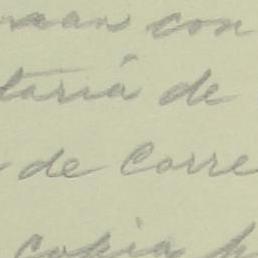 con
taría de
de Corre
Copia p